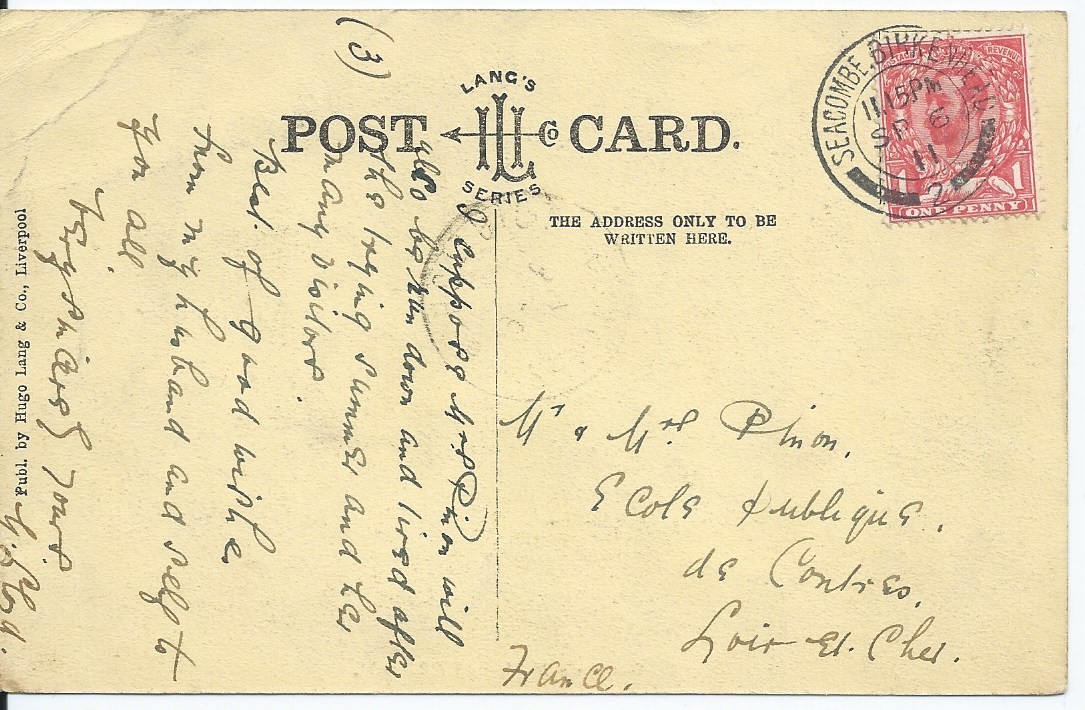 (3)
LANG'S
POST CARD.
Co
SERIES
THE ADDRESS ONLY TO BE
WRITTEN HERE.
SEACOMBE. BIRKENHEAD
11.15PM
SP 6
11
2
POSTAGE REVENUE
1 1
ONE PENNY
I suppose Mrs Pinon will
also be run down and tired after
the trying summer and her
many visitors.
Best of good wishes
from my husband and self to
you all.
Very sincerely yours
Mr & Mrs Pinon.
Ecole publique.
de Contres.
Loir et. Cher.
France.
Publ. by Hugo Lang & Co., Liverpool